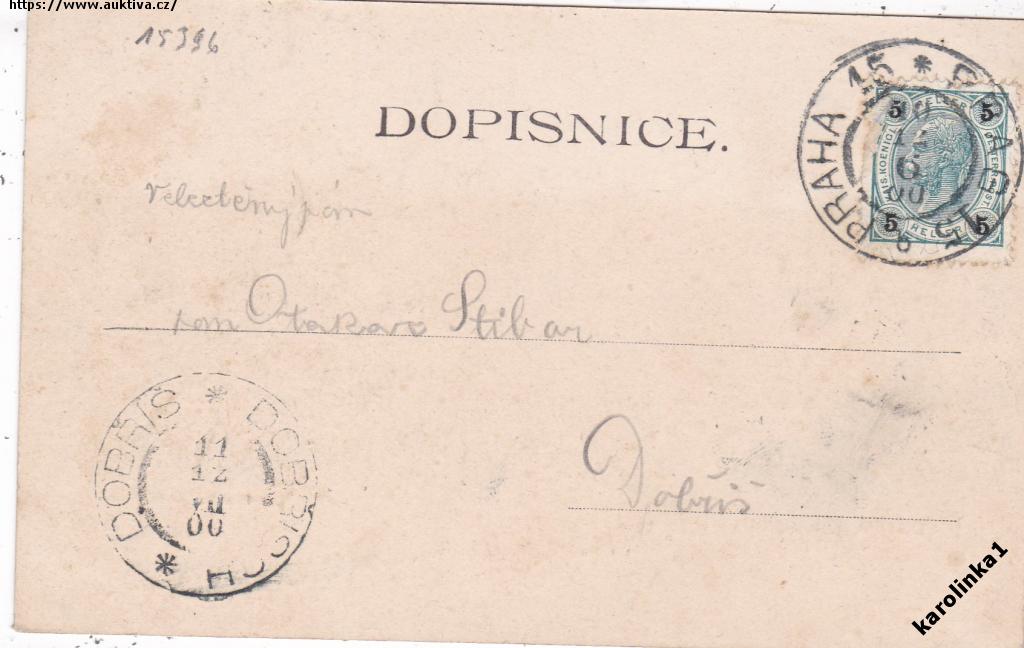 https://www.auktiva.cz/
15396
DOPISNICE.
PRAHA 15 * PRAG 15
12
6
00
5 HELLER 5
5 HELLER 5
Velectěný pán
pan Otakar Stibar
Dobříš
DOBŘÍŠ * DOBŘISCH *
11
12
VII
00
karolinka1